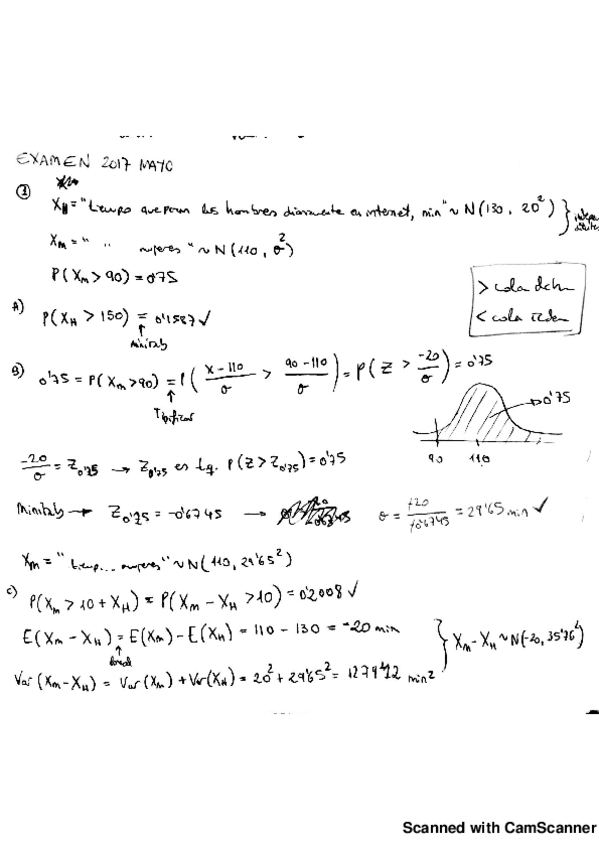 EXAMEN 2017 MAYO
①
X_H = "tiempo que pasan los hombres diariamente en internet, min" ~ N(130, 20²) } indep
X_M = " " mujeres " ~ N(110, σ²)
P(X_M > 90) = 0'75
> cola dcha
< cola izda
A) P(X_H > 150) = 0'1587 ✓
↑
minitab
B) 0'75 = P(X_M > 90) = P( (X - 110)/σ > (90 - 110)/σ ) = P( Z > -20/σ ) = 0'75
↑
Tipificar
0'75
90 110
-20/σ = Z_0'75 → Z_0'75 es tq. P(Z > Z_0'75) = 0'75
Minitab → Z_0'75 = -0'6745 → σ = +20/+0'6745 = 29'65 min ✓
X_M = "tiempo... mujeres" ~ N(110, 29'65²)
C) P(X_M > 10 + X_H) = P(X_M - X_H > 10) = 0'2008 ✓
E(X_M - X_H) = E(X_M) - E(X_H) = 110 - 130 = -20 min } X_M - X_H ~ N(-20, 35'76²)
↑
Var(X_M - X_H) = Var(X_M) + Var(X_H) = 20² + 29'65² = 1279'12 min²
Scanned with CamScanner